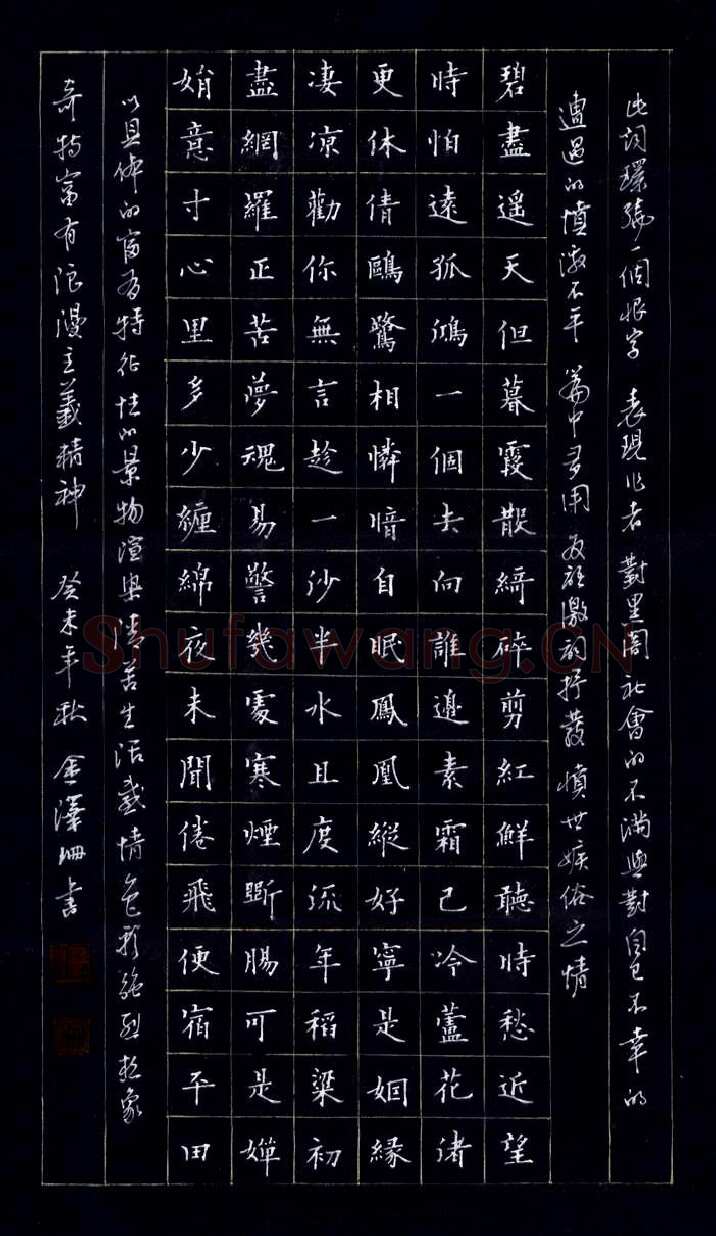 此詞環繞一個恨字 表現作者對黑闇社會的不滿與對自己不幸的
遭遇的憤激不平 篇中多用反語激詞抒發憤世嫉俗之情
碧盡遥天但暮霞散綺碎剪紅鮮聽時愁近望
時怕遠孤鴻一個去向誰邊素霜已冷蘆花渚
更休倩鷗鷺相憐暗自眠鳳凰縱好寧是姻緣
凄凉勸你無言趁一沙半水且度流年稻粱初
盡網羅正苦夢魂易警幾處寒煙斷腸可是嬋
娟意寸心里多少纏綿夜未聞倦飛便宿平田
以具体的富有特征性的景物渲與清苦生活感情色彩強烈想象
奇特富有浪漫主義精神 癸未年秋 金澤珊書
Shufawang.CN